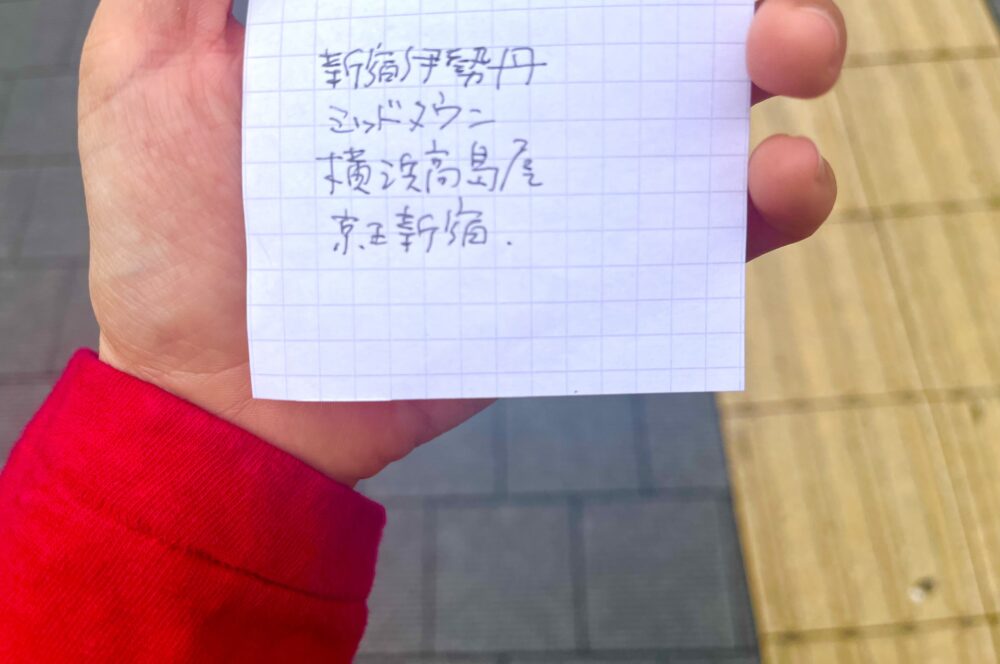 新宿伊勢丹
ミッドタウン
横浜高島屋
京王新宿.